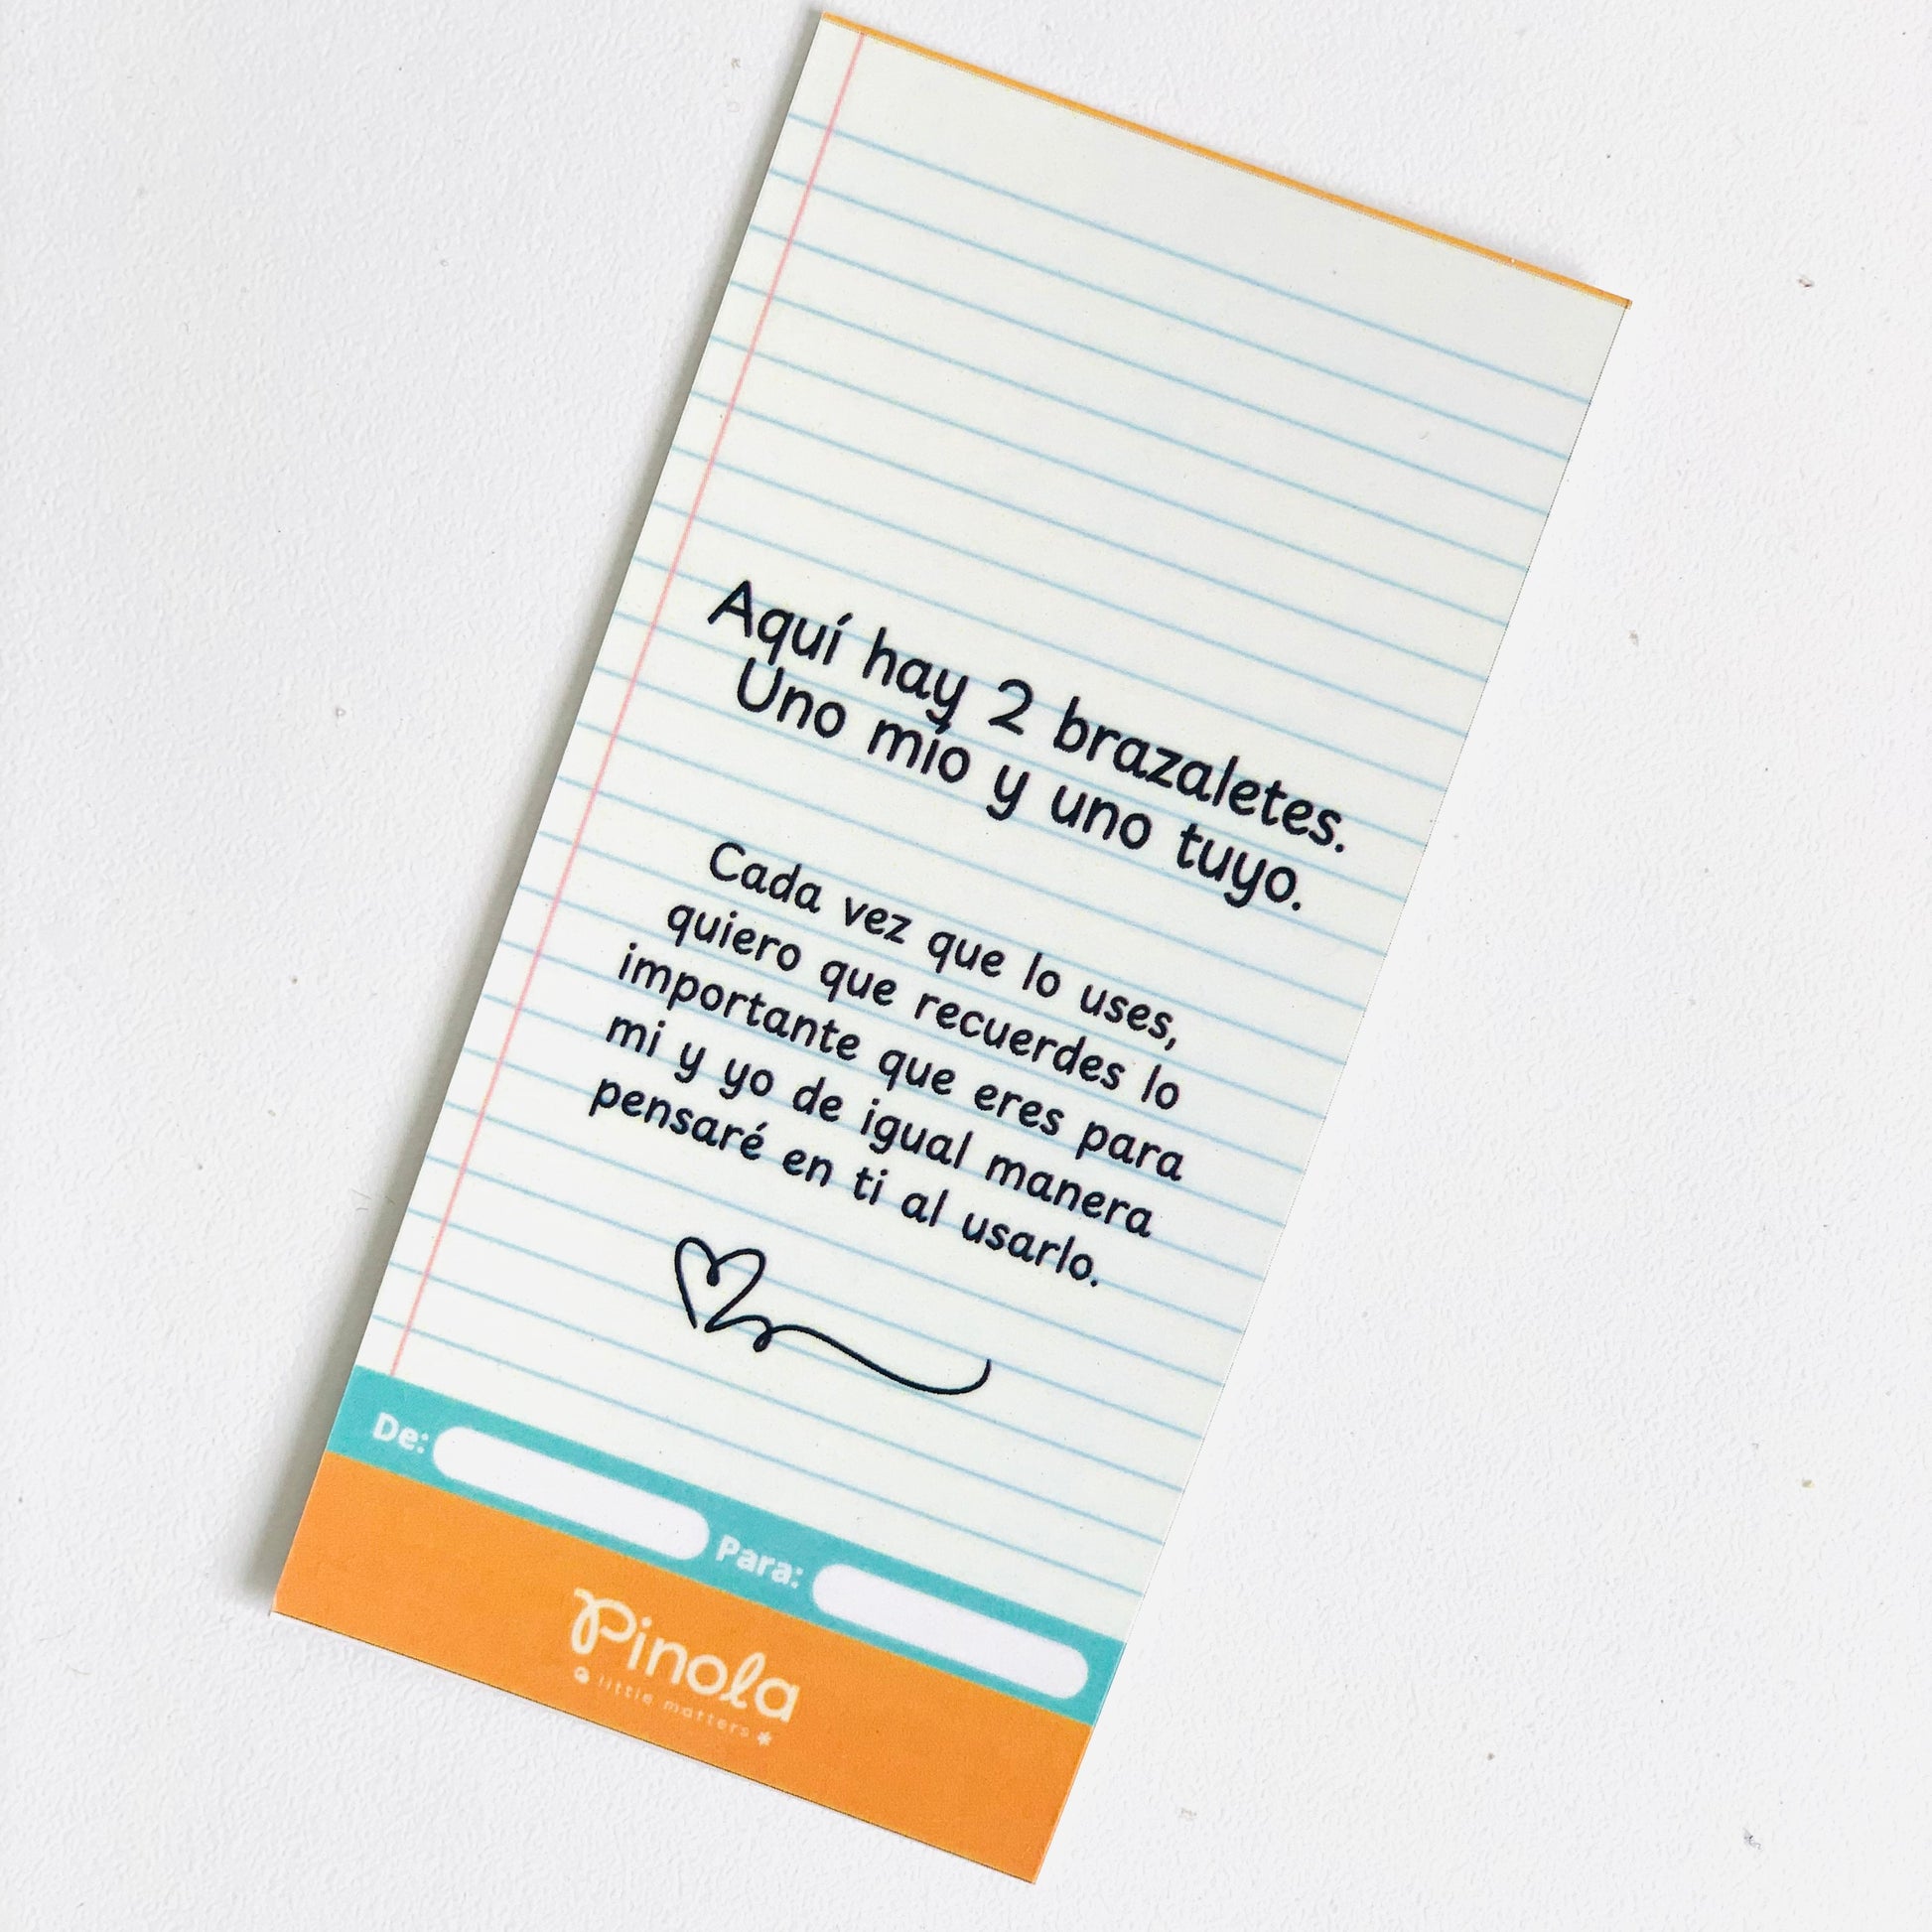 Aquí hay 2 brazaletes.
Uno mío y uno tuyo.
Cada vez que lo uses,
quiero que recuerdes lo
importante que eres para
mi y yo de igual manera
pensaré en ti al usarlo.
De:
Para:
Pinola
little matters